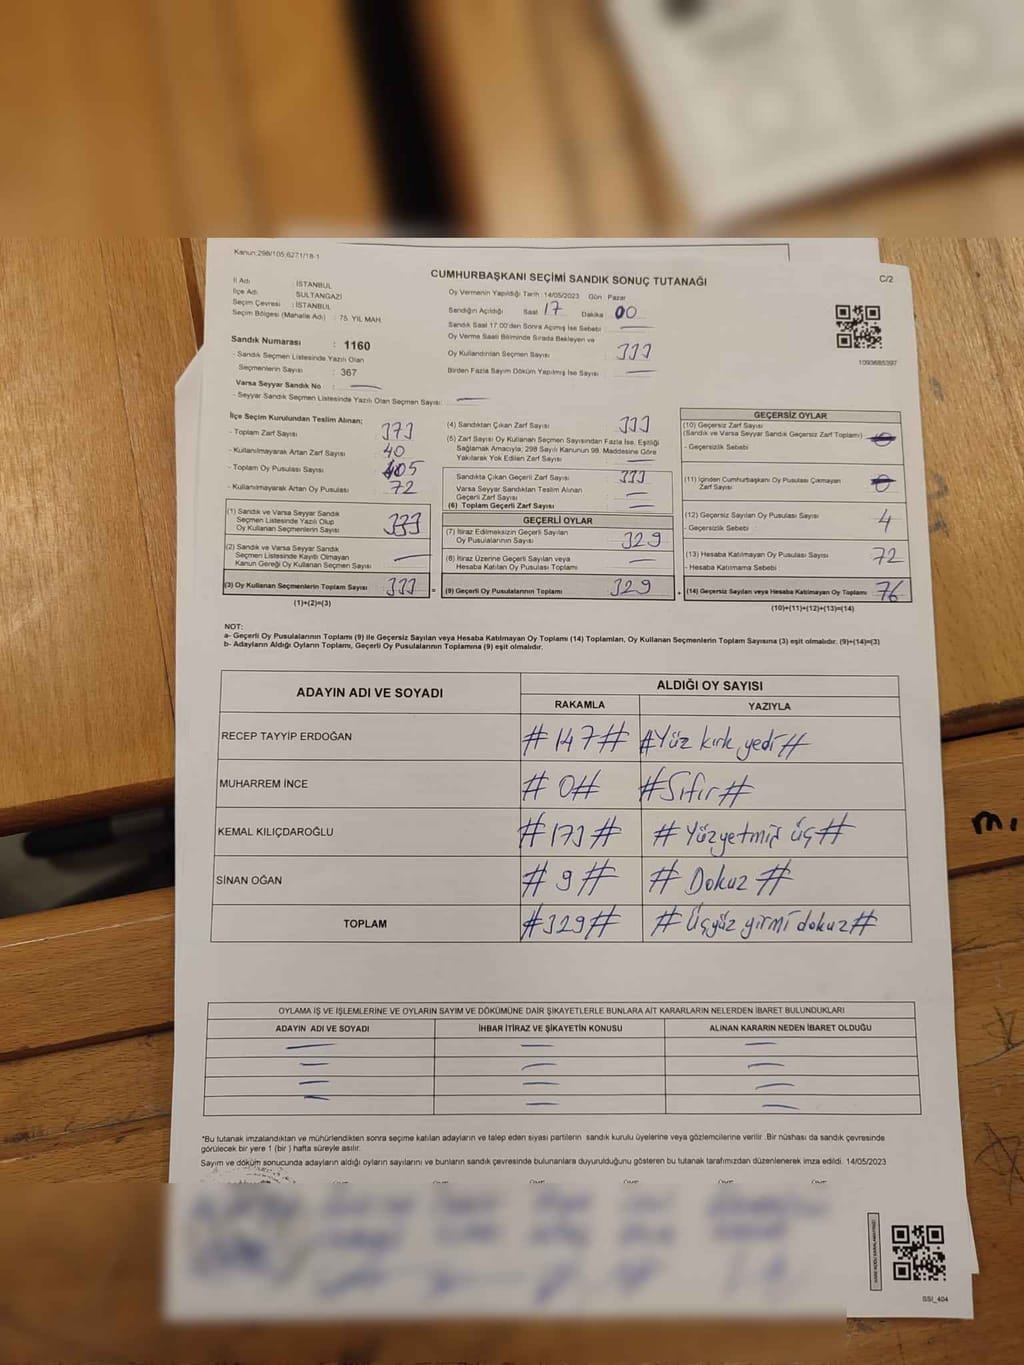 Kanun:298/105;6271/18-1
CUMHURBAŞKANI SEÇİMİ SANDIK SONUÇ TUTANAĞI
C/2
İl Adı : İSTANBUL
İlçe Adı : SULTANGAZİ
Seçim Çevresi : İSTANBUL
Seçim Bölgesi (Mahalle Adı) : 75. YIL MAH.
Sandık Numarası : 1160
- Sandık Seçmen Listesinde Yazılı Olan
Seçmenlerin Sayısı : 367
Varsa Seyyar Sandık No
- Seyyar Sandık Seçmen Listesinde Yazılı Olan Seçmen Sayısı:
Oy Vermenin Yapıldığı Tarih : 14/05/2023 Gün : Pazar
Sandığın Açıldığı Saat 17 Dakika 00
Sandık Saat 17.00'den Sonra Açımış İse Sebebi
Oy Verme Saati Bitiminde Sırada Bekleyen ve
Oy Kullandırılan Seçmen Sayısı 333
Birden Fazla Sayım Döküm Yapılmış İse Sayısı
1093685397
İlçe Seçim Kurulundan Teslim Alınan;
- Toplam Zarf Sayısı 373
- Kullanılmayarak Artan Zarf Sayısı 40
- Toplam Oy Pusulası Sayısı 405
- Kullanılmayarak Artan Oy Pusulası 72
(1) Sandık ve Varsa Seyyar Sandık
Seçmen Listesinde Yazılı Olup
Oy Kullanan Seçmenlerin Sayısı 333
(2) Sandık ve Varsa Seyyar Sandık
Seçmen Listesinde Kayıtlı Olmayan
Kanun Gereği Oy Kullanan Seçmen Sayısı
(3) Oy Kullanan Seçmenlerin Toplam Sayısı 333 =
(1)+(2)=(3)
(4) Sandıktan Çıkan Zarf Sayısı 333
(5) Zarf Sayısı Oy Kullanan Seçmen Sayısından Fazla İse, Eşitliği
Sağlamak Amacıyla; 298 Sayılı Kanunun 98. Maddesine Göre
Yakılarak Yok Edilen Zarf Sayısı
Sandıkta Çıkan Geçerli Zarf Sayısı 333
Varsa Seyyar Sandıktan Teslim Alınan
Geçerli Zarf Sayısı
(6) Toplam Geçerli Zarf Sayısı
GEÇERLİ OYLAR
(7) İtiraz Edilmeksizin Geçerli Sayılan
Oy Pusulalarının Sayısı 329
(8) İtiraz Üzerine Geçerli Sayılan veya
Hesaba Katılan Oy Pusulası Toplamı
(9) Geçerli Oy Pusulalarının Toplamı 329 +
GEÇERSİZ OYLAR
(10) Geçersiz Zarf Sayısı
(Sandık ve Varsa Seyyar Sandık Geçersiz Zarf Toplamı)
- Geçersizlik Sebebi
(11) İçinden Cumhurbaşkanı Oy Pusulası Çıkmayan
Zarf Sayısı
(12) Geçersiz Sayılan Oy Pusulası Sayısı 4
- Geçersizlik Sebebi
(13) Hesaba Katılmayan Oy Pusulası Sayısı 72
- Hesaba Katılmama Sebebi
(14) Geçersiz Sayılan veya Hesaba Katılmayan Oy Toplamı 76
(10)+(11)+(12)+(13)=(14)
NOT:
a- Geçerli Oy Pusulalarının Toplamı (9) ile Geçersiz Sayılan veya Hesaba Katılmayan Oy Toplamı (14) Toplamları, Oy Kullanan Seçmenlerin Toplam Sayısına (3) eşit olmalıdır. (9)+(14)=(3)
b- Adayların Aldığı Oyların Toplamı, Geçerli Oy Pusulalarının Toplamına (9) eşit olmalıdır.
ADAYIN ADI VE SOYADI
ALDIĞI OY SAYISI
RAKAMLA YAZIYLA
RECEP TAYYİP ERDOĞAN #147# #Yüz kırk yedi#
MUHARREM İNCE #0# #Sıfır#
KEMAL KILIÇDAROĞLU #173# #Yüzyetmiş üç#
SİNAN OĞAN #9# #Dokuz#
TOPLAM #329# #Üçyüz yirmi dokuz#
OYLAMA İŞ VE İŞLEMLERİNE VE OYLARIN SAYIM VE DÖKÜMÜNE DAİR ŞİKAYETLERLE BUNLARA AİT KARARLARIN NELERDEN İBARET BULUNDUKLARI
ADAYIN ADI VE SOYADI İHBAR İTİRAZ VE ŞİKAYETİN KONUSU ALINAN KARARIN NEDEN İBARET OLDUĞU
*Bu tutanak imzalandıktan ve mühürlendikten sonra seçime katılan adayların ve talep eden siyasi partilerin sandık kurulu üyelerine veya gözlemcilerine verilir. Bir nüshası da sandık çevresinde
görülecek bir yere 1 (bir) hafta süreyle asılır.
Sayım ve döküm sonucunda adayların aldığı oyların sayılarını ve bunların sandık çevresinde bulunanlara duyurulduğunu gösteren bu tutanak tarafımızdan düzenlenerek imza edildi. 14/05/2023
SSI_404